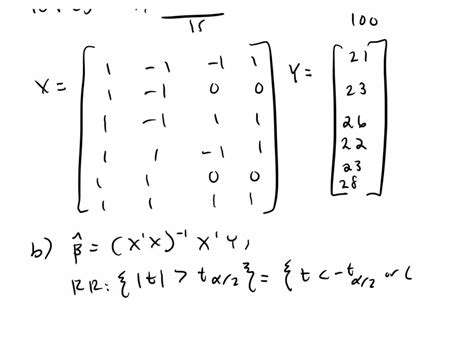 15
100
X = [ 1 -1 -1 1
1 -1 0 0
1 -1 1 1
1 1 -1 1
1 1 0 0
1 1 1 1 ]
Y = [ 21
23
26
22
23
28 ]
b) β̂ = (X'X)⁻¹ X'Y,
RR: { |t| > t_{α/2} } = { t < -t_{α/2} or (